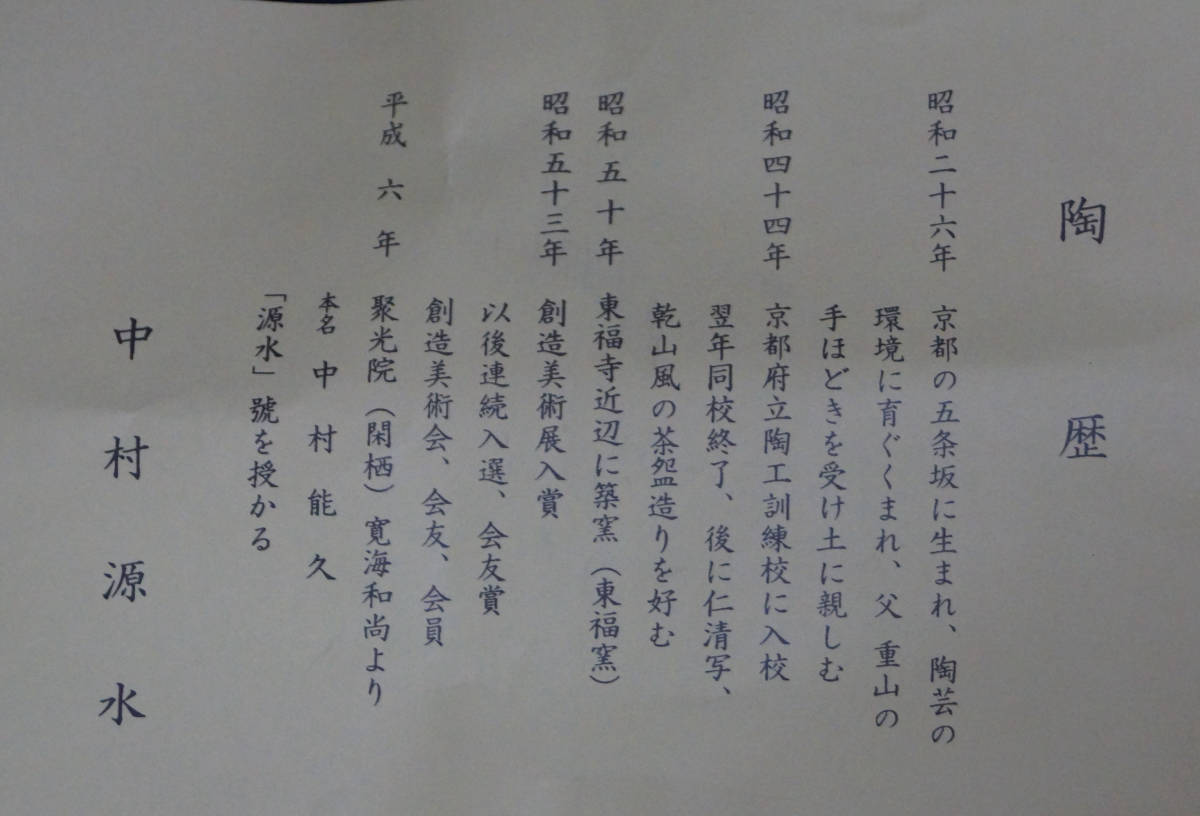 陶歴
昭和二十六年 京都の五条坂に生まれ、陶芸の
環境に育ぐくまれ、父 重山の
手ほどきを受け土に親しむ
昭和四十四年 京都府立陶工訓練校に入校
翌年同校終了、後に仁清写、
乾山風の茶盌造りを好む
昭和五十年 東福寺近辺に築窯（東福窯）
昭和五十三年 創造美術展入賞
以後連続入選、会友賞
創造美術会、会友、会員
平成六年 聚光院（閑栖）寛海和尚より
本名 中村能久
「源水」號を授かる
中村源水